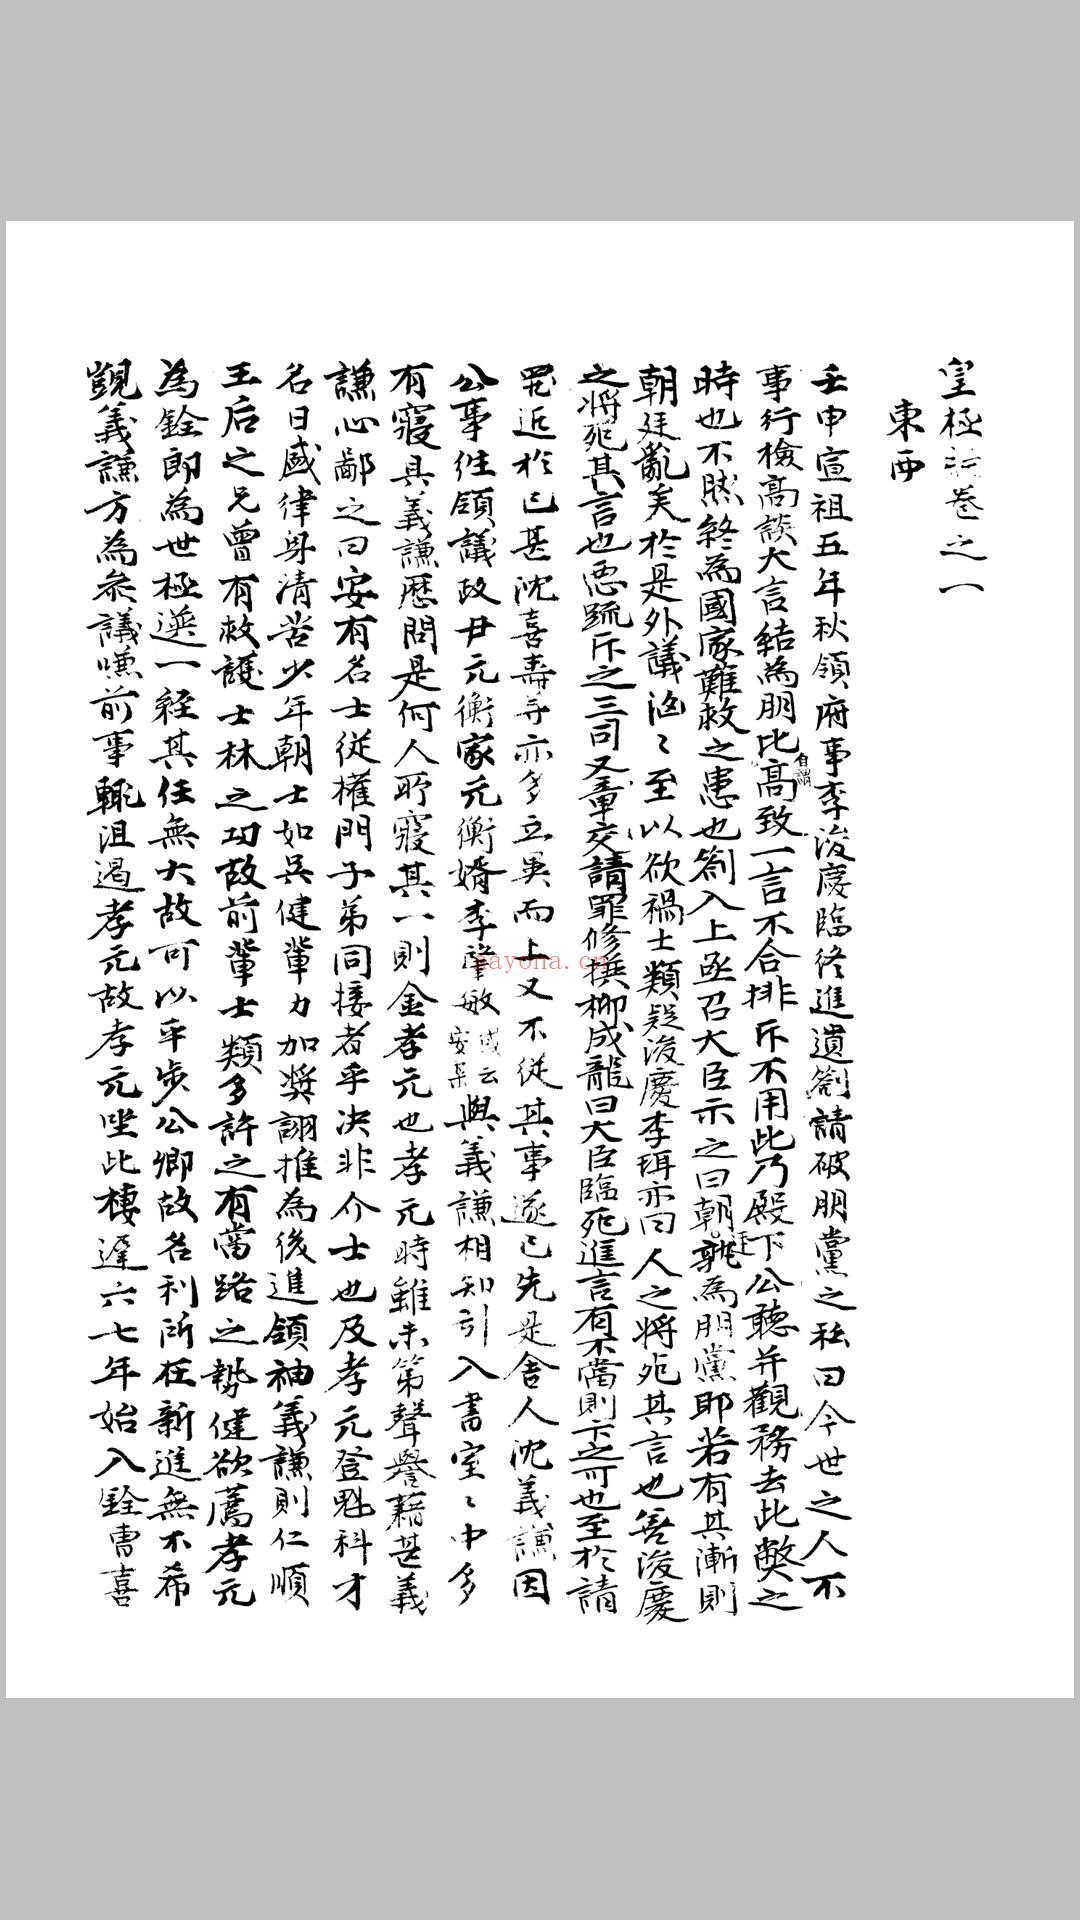 皇極編卷之一
東西
壬申宣祖五年秋領府事李浚慶臨終進遺劄請破朋黨之私曰今世之人不
事行檢高談大言結為朋比自謂高致一言不合排斥不用此乃殿下公聽并觀務去此弊之
時也不然終為國家難救之患也劄入上亟召大臣示之曰朝廷孰為朋黨耶若有其漸則
朝廷亂矣於是外議洶〻至以欲禍士類疑浚慶李珥亦曰人之將死其言也善浚慶
之將死其言也惡疏斥之三司又章交請罪修撰柳成龍曰大臣臨死進言有不當則卞之可也至於請
罪近於已甚沈喜壽等亦多立異而上又不從其事遂已先是舍人沈義謙因
公事往領議政尹元衡家元衡婿李肇敏或云安某與義謙相知引入書室〻中多
有寢具義謙歷問是何人所寢其一則金孝元也孝元時雖未第聲譽藉甚義
謙心鄙之曰安有名士從權門子弟同接者乎決非介士也及孝元登魁科才
名日盛律身清苦少年朝士如吳健輩力加獎詡推為後進領袖義謙則仁順
王后之兄曾有救護士林之功故前輩士類多許之有當路之勢健欲薦孝元
為銓郎為世極選一經其任無大故可以平步公卿故名利所在新進無不希
覬義謙方為參議嗛前事輒沮遏孝元故孝元坐此棲遲六七年始入銓曹喜
nayona.cn